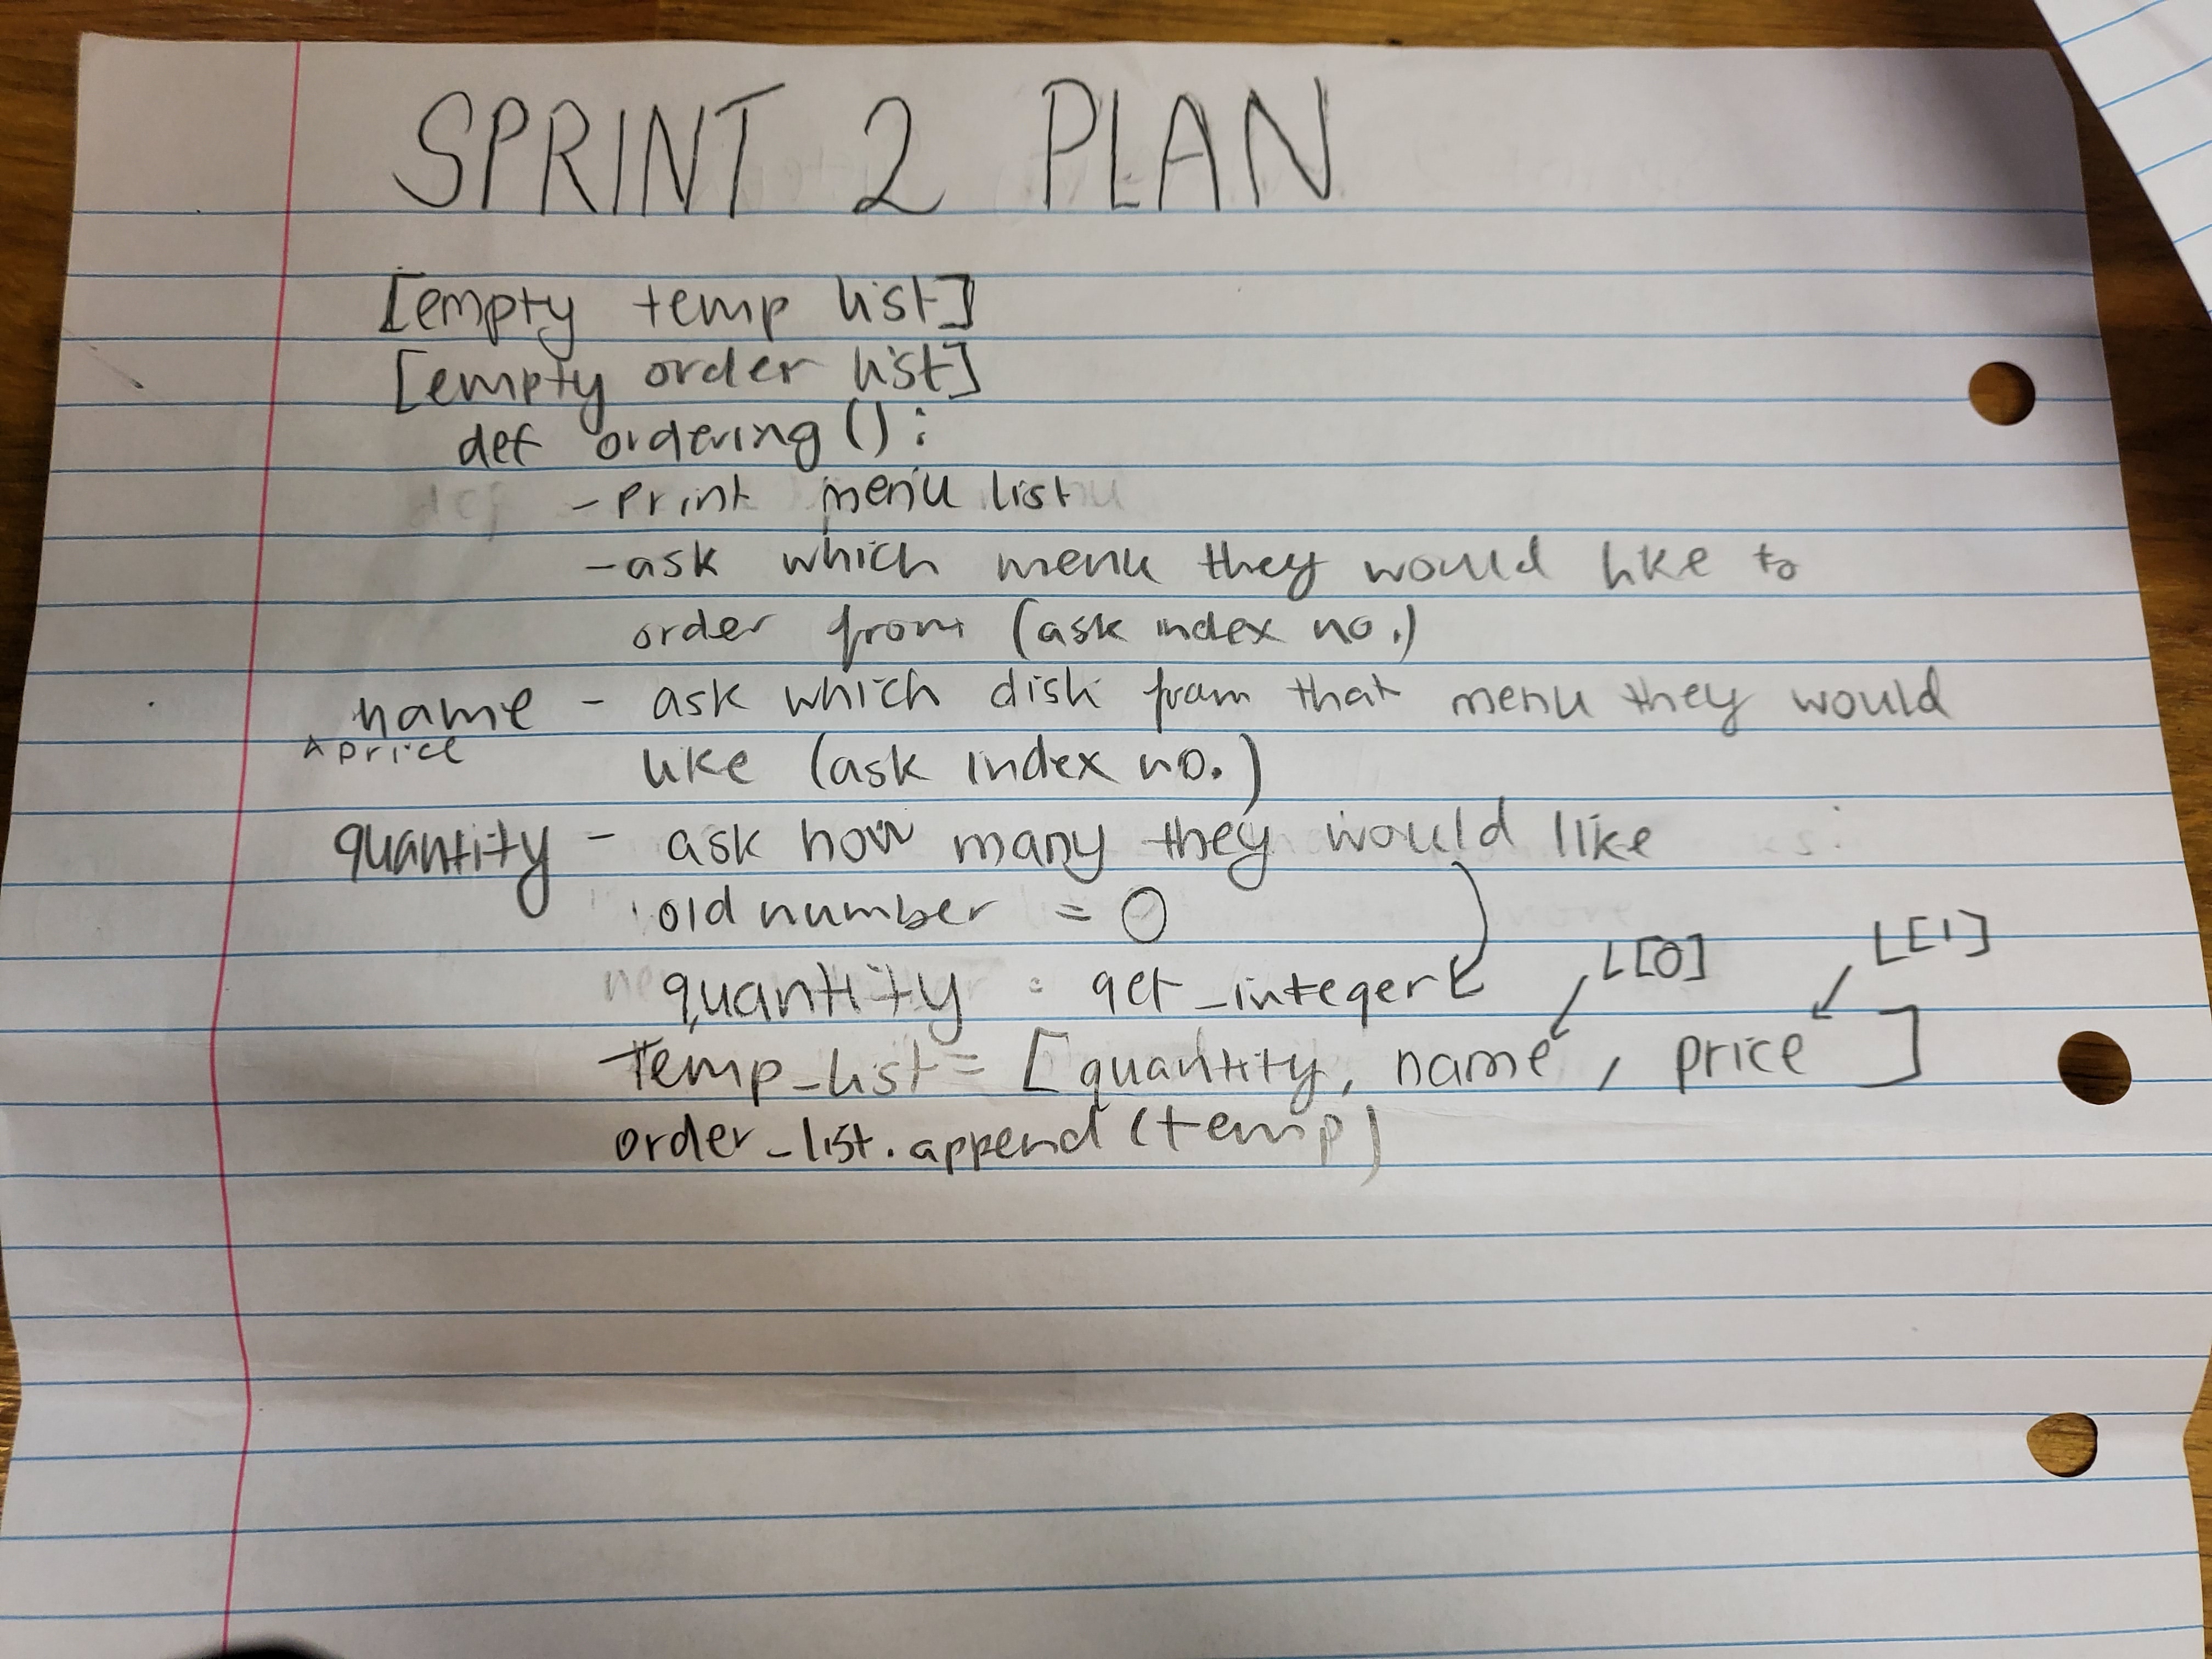 SPRINT 2 PLAN
[empty temp list]
[empty order list]
def ordering():
- Print menu list
- ask which menu they would like to
order from (ask index no.)
name - ask which dish from that menu they would
^ price
like (ask index no.)
quantity - ask how many they would like
old number = 0
L[0]
L[1]
quantity = get_integer
Temp_list = [quantity, name, price]
order_list.append(temp)